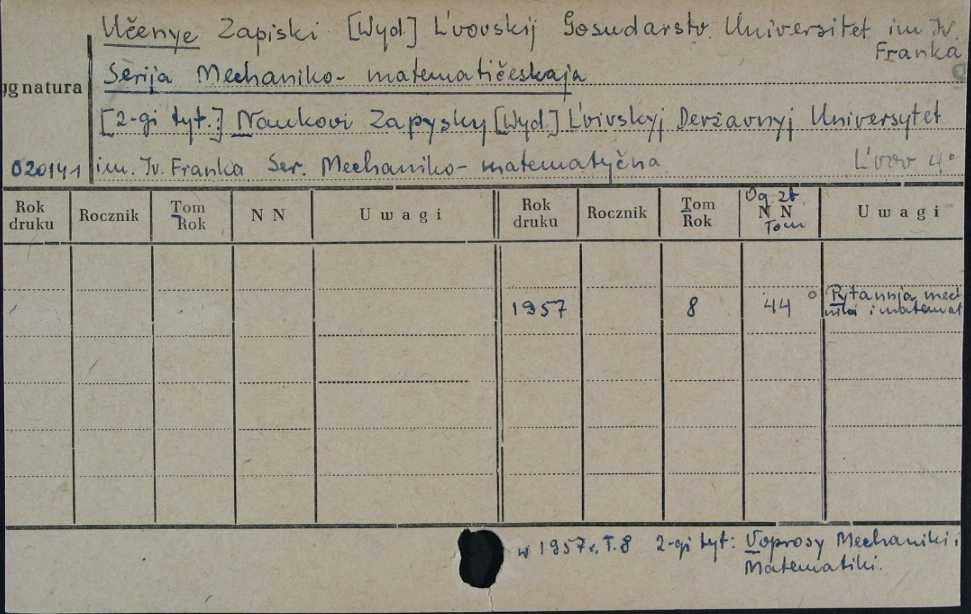 Učenye Zapiski [Wyd] L'vovskij Gosudarstv. Universitet im Iv.
Franka
Serija Mechaniko-matematičeskaja
gnatura
[2-gi tyt.] Naukovi Zapysky [Wyd] L'vivskyj Deržavnyj Universytet
020141 im. Iv. Franka Ser. Mechaniko-matematyčna L'vov 4°
Rok druku Rocznik Tom Rok N N Uwagi Rok druku Rocznik Tom Rok Og. zb. N N Tom Uwagi
1957 8 44 Pytannja mech
niki i matemat
w 1957 r. T. 8 2-gi tyt: Voprosy Mechaniki i
Matematiki.